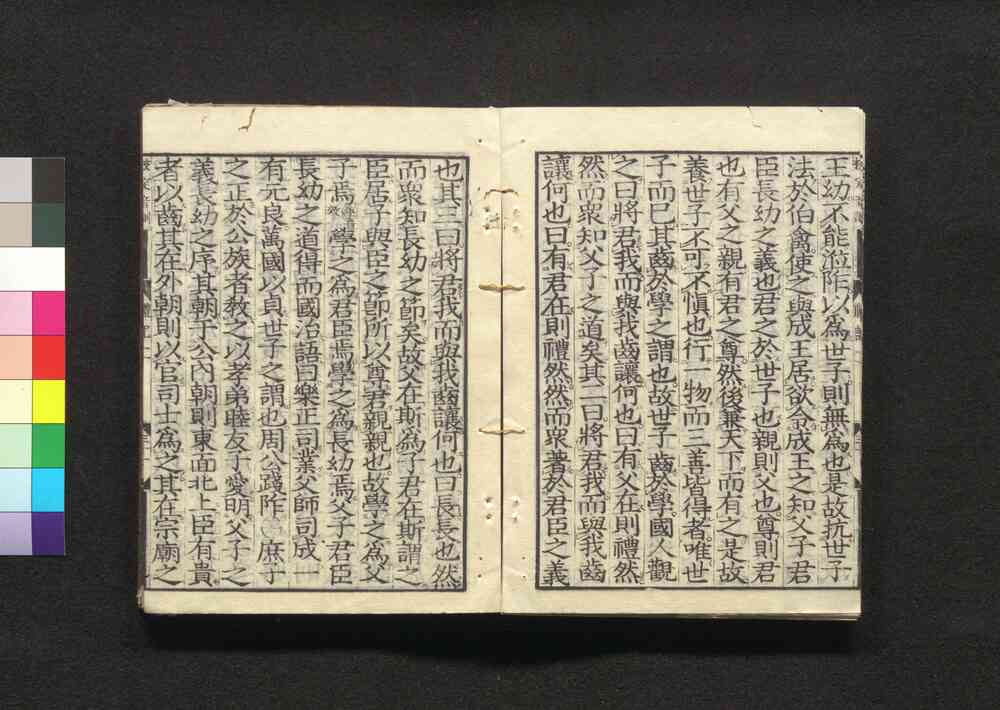 王幼不能涖阼以為世子則無為也是故抗世子
法於伯禽使之與成王居欲令成王之知父子君
臣長幼之義也君之於世子也親則父也尊則君
也有父之親有君之尊然後兼天下而有之是故
養世子不可不慎也行一物而三善皆得者唯世
子而已其齒於學之謂也故世子齒於學國人觀
之曰將君我而與我齒讓何也曰有父在則禮然
然而衆知父子之道矣其二曰將君我而與我齒
讓何也曰有君在則禮然然而衆著於君臣之義
也其三曰將君我而與我齒讓何也曰長長也然
而衆知長幼之節矣故父在斯為子君在斯謂之
臣居子與臣之節所以尊君親親也故學之為父
子焉學之為君臣焉學之為長幼焉父子君臣
長幼之道得而國治語曰樂正司業父師司成一
有元良萬國以貞世子之謂也周公踐阼庶子
之正於公族者教之以孝弟睦友子愛明父子之
義長幼之序其朝于公內朝則東面北上臣有貴
者以齒其在外朝則以官司士為之其在宗廟之